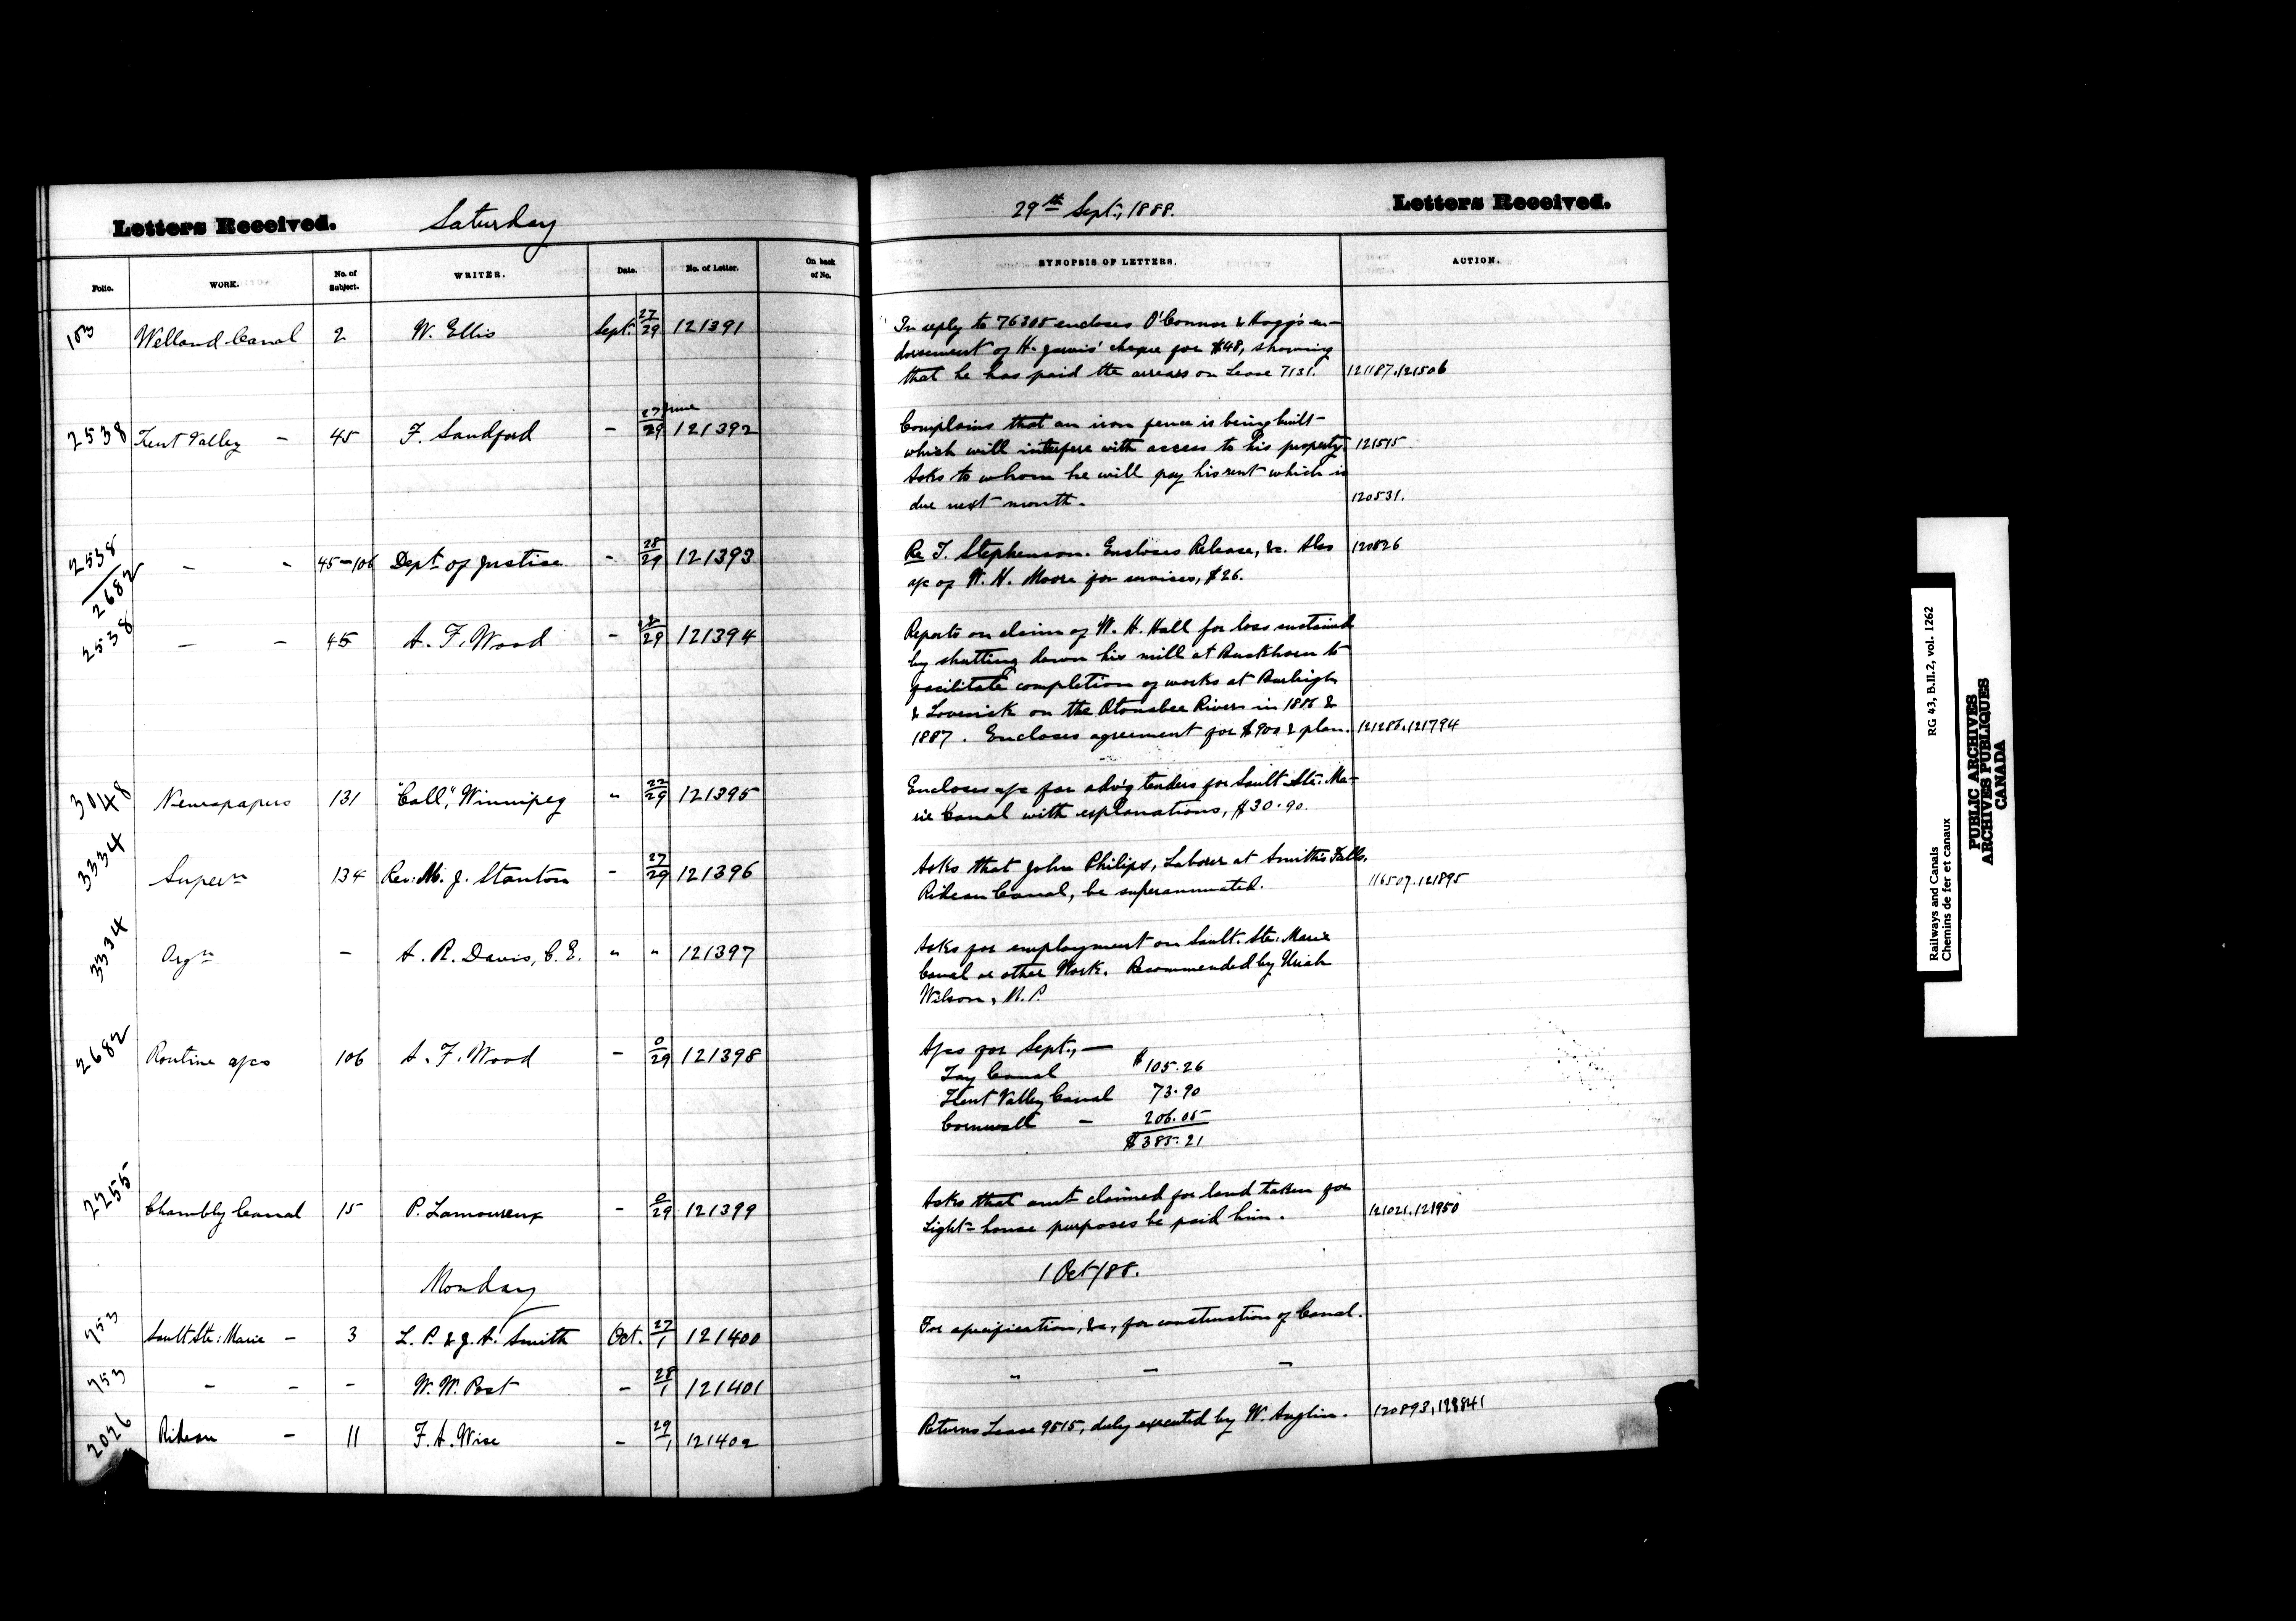 Letters Received. Saturday
Folio. WORK. No. of Subject. WRITER. Date. No. of Letter. On back of No.
103 Welland Canal 2 W. Ellis Sept. 27/29 121391
2538 Trent Valley - 45 F. Sandford - 27 June/29 121392
2538/2682 - - 45-106 Dept. of Justice - 28/29 121393
2538 - - 45 A. F. Wood - 28/29 121394
3048 Newspapers 131 "Call", Winnipeg " 22/29 121395
3334 Supern 134 Rev: M. J. Stanton - 27/29 121396
3334 Orgn - A. R. Davis, C. E. " " 121397
2682 Routine a/cs 106 A. F. Wood - 0/29 121398
2255 Chambly Canal 15 P. Lamoureux - 0/29 121399
Monday
753 Sault Ste: Marie - 3 L. P. & J. A. Smith Oct. 27/1 121400
753 - - - W. W. Post - 28/1 121401
2026 Rideau - 11 F. A. Wise - 29/1 121402
29th Sept., 1888. Letters Received.
SYNOPSIS OF LETTERS. ACTION.
In reply to 76305 encloses O'Connor & Hogg's en-
dorsement of H. Jarvis' cheque for $48, showing
that he has paid the arrears on Lease 7131. 121187.121506
Complains that an iron fence is being built
which will interfere with access to his property 121515
Asks to whom he will pay his rent which is
due next month. 120531.
Re T. Stephenson. Encloses Release, &c. Also 120826
a/c of W. H. Moore for services, $26.
Reports on claim of W. H. Hall for loss sustained
by shutting down his mill at Buckhorn to
facilitate completion of works at Burleigh
& Lovesick on the Otonabee River in 1886 &
1887. Encloses agreement for $900 & plan. 121286.121794
Encloses a/c for adv'g tenders for Sault Ste: Ma-
rie Canal with explanations, $30.90.
Asks that John Philips, Laborer at Smith's Falls,
Rideau Canal, be superannuated. 116507.121895
Asks for employment on Sault. Ste: Marie
Canal or other Work. Recommended by Uriah
Wilson, M. P.
A/cs for Sept., —
Tay Canal $105.26
Trent Valley Canal 73.90
Cornwall - 206.05
$385.21
Asks that amt claimed for land taken for
Light-house purposes be paid him. 121021.121950
1 Oct/88.
For specification, &c, for construction of Canal.
" - -
Returns Lease 9515, duly executed by W. Anglin. 120893,
Railways and Canals RG 43, B.II.2, vol. 1262
Chemins de fer et canaux
PUBLIC ARCHIVES
ARCHIVES PUBLIQUES
CANADA